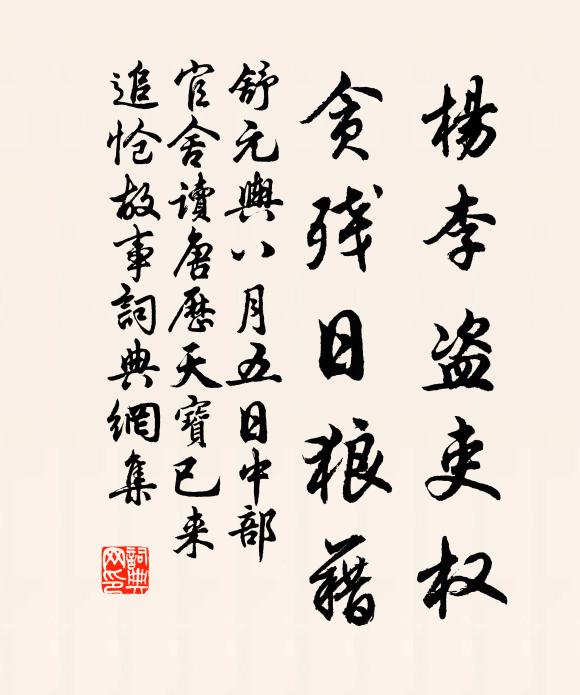 楊李盗吏权
贪残日狼藉
舒元輿八月五日中部
官舍讀唐歷天寶已来
追愴故事詞典網集
詞典网印